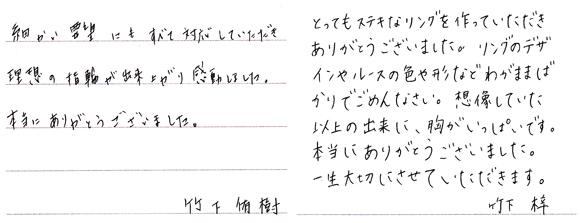 細かい要望にもすべて対応していただき
理想の指輪が出来上がり感動しました。
本当にありがとうございました。
竹下 侑樹
とってもステキなリングを作っていただき
ありがとうございました。リングのデザ
インやルースの色や形などわがままば
かりでごめんなさい。想像していた
以上の出来に、胸がいっぱいです。
本当にありがとうございました。
一生大切にさせていただきます。
竹下 梓